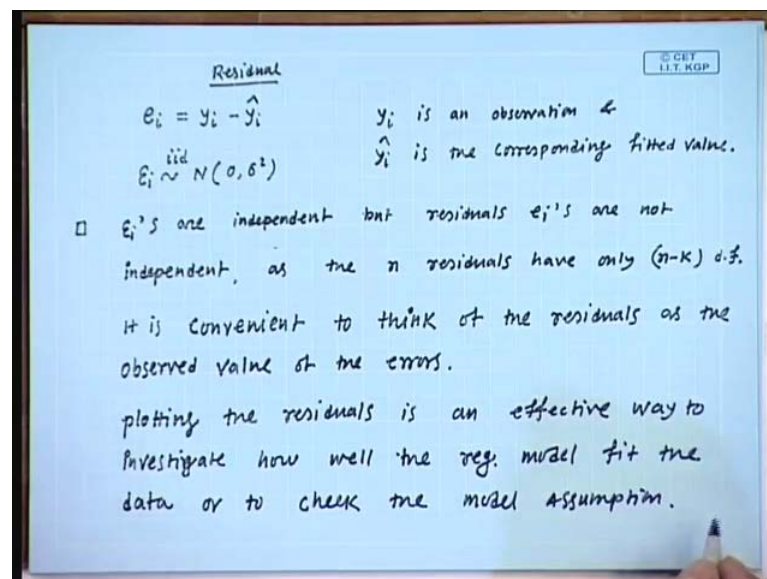 © CET
I.I.T. KGP
Residual
eᵢ = yᵢ - ŷᵢ
yᵢ is an observation &
ŷᵢ is the corresponding fitted value.
εᵢ iid ~ N(0, σ²)
□ εᵢ's are independent but residuals eᵢ's are not
independent, as the n residuals have only (n-k) d.f.
It is convenient to think of the residuals as the
observed value of the errors.
plotting the residuals is an effective way to
investigate how well the reg. model fit the
data or to check the model Assumption.